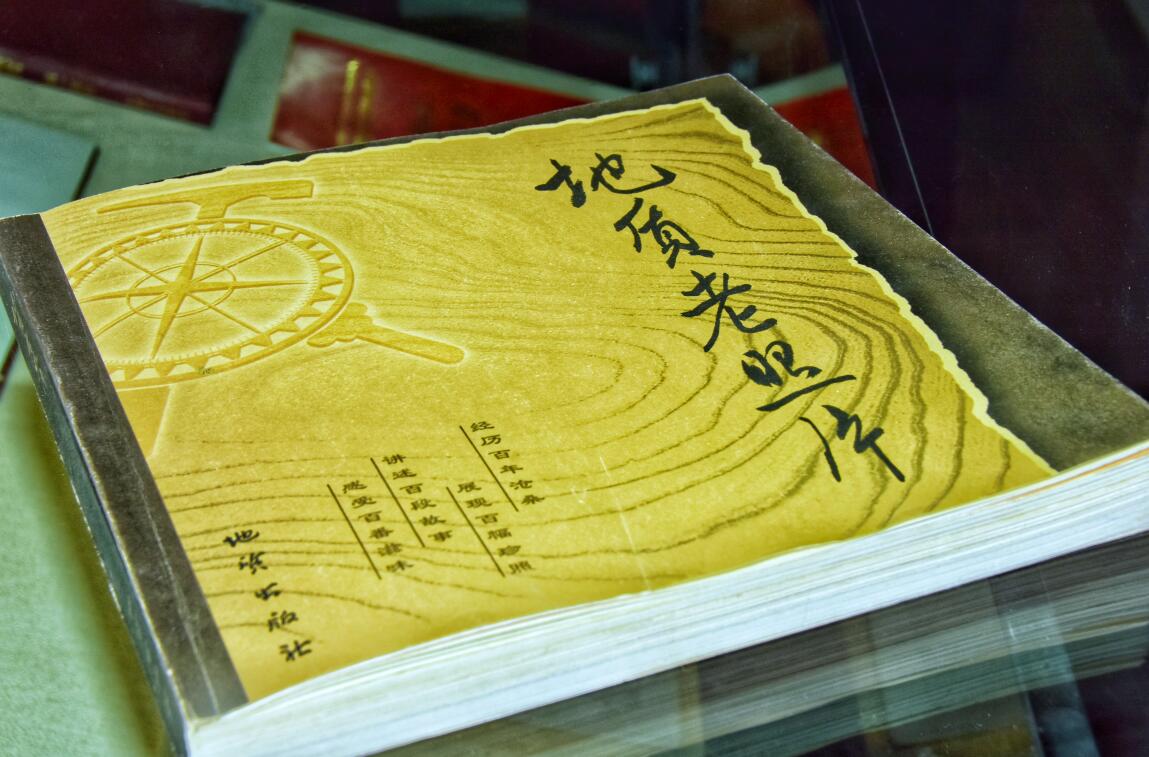 地质老照片
经历百年沧桑
展现百幅珍照
讲述百段故事
感受百番滋味
地质出版社